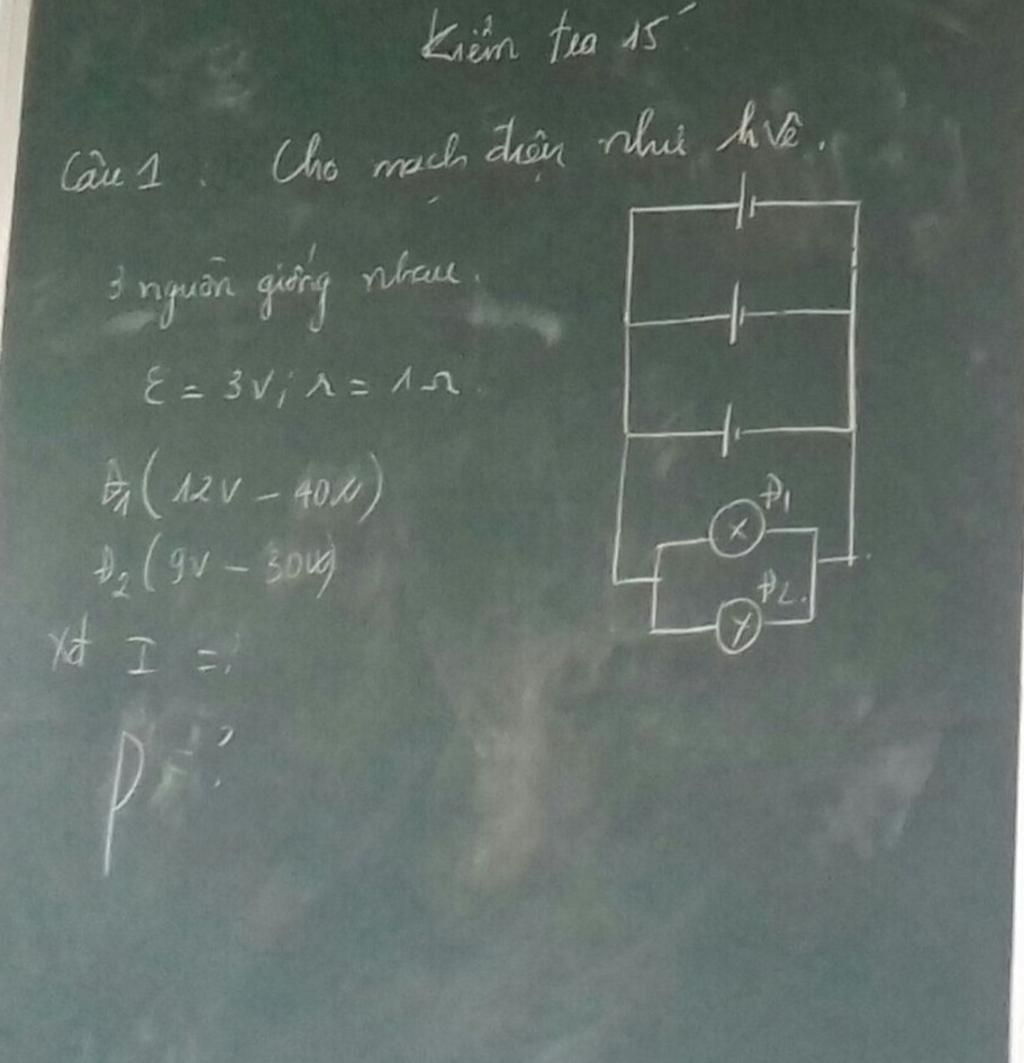 Kiểm tra 15'
Câu 1. Cho mạch điện như hvẽ.
3 nguồn giống nhau.
ℰ = 3V; r = 1Ω.
Đ1 (12V - 40W)
Đ2 (9V - 30W)
Xđ I = ?
P = ?
Đ1
Đ2.